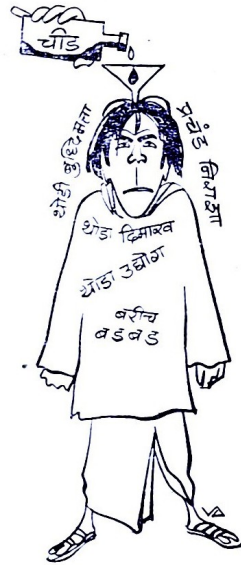 चीड
थोडी बुध्दिमत्ता
प्रचंड निराशा
थोडा दिमाख
थोडा उद्योग
बरीच
बडबड